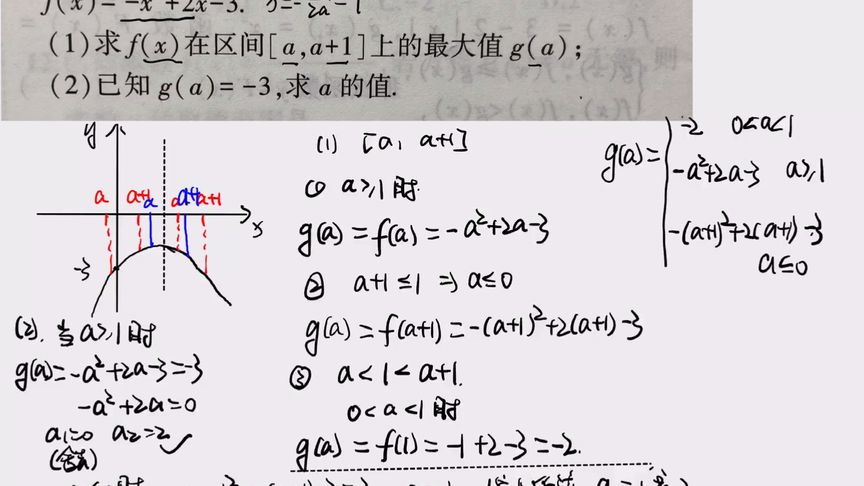 f(x)=-x²+2x-3.
(1)求f(x)在区间[a,a+1]上的最大值g(a);
(2)已知g(a)=-3,求a的值.
y
a a+1 a a a+1 a+1
x
-3
(1) [a, a+1]
① a≥1时
g(a)=f(a)=-a²+2a-3
② a+1≤1 ⇒ a≤0
g(a)=f(a+1)=-(a+1)²+2(a+1)-3
③ a<1<a+1.
0<a<1时
g(a)=f(1)=-1+2-3=-2.
g(a)=
-2 0<a<1
-a²+2a-3 a≥1
-(a+1)²+2(a+1)-3
a≤0
(2). 当a≥1时
g(a)=-a²+2a-3=-3
-a²+2a=0
a₁=0 a₂=2 ✓
(舍去)